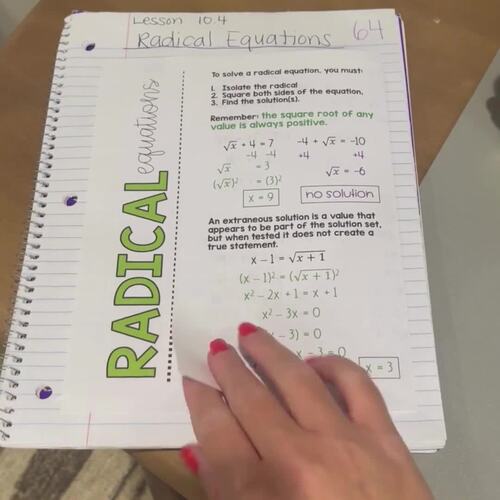 Lesson 10.4
Radical Equations 64
RADICAL equations
To solve a radical equation, you must:
1. Isolate the radical
2. Square both sides of the equation,
3. Find the solution(s).
Remember: the square root of any
value is always positive.
√x + 4 = 7 -4 + √x = -10
-4 -4 +4 +4
√x = 3 √x = -6
(√x)² = (3)²
x = 9 no solution
An extraneous solution is a value that
appears to be part of the solution set,
but when tested it does not create a
true statement.
x - 1 = √x + 1
(x - 1)² = (√x + 1)²
x² - 2x + 1 = x + 1
x² - 3x = 0
- 3) = 0
x - 3 = 0
x = 3